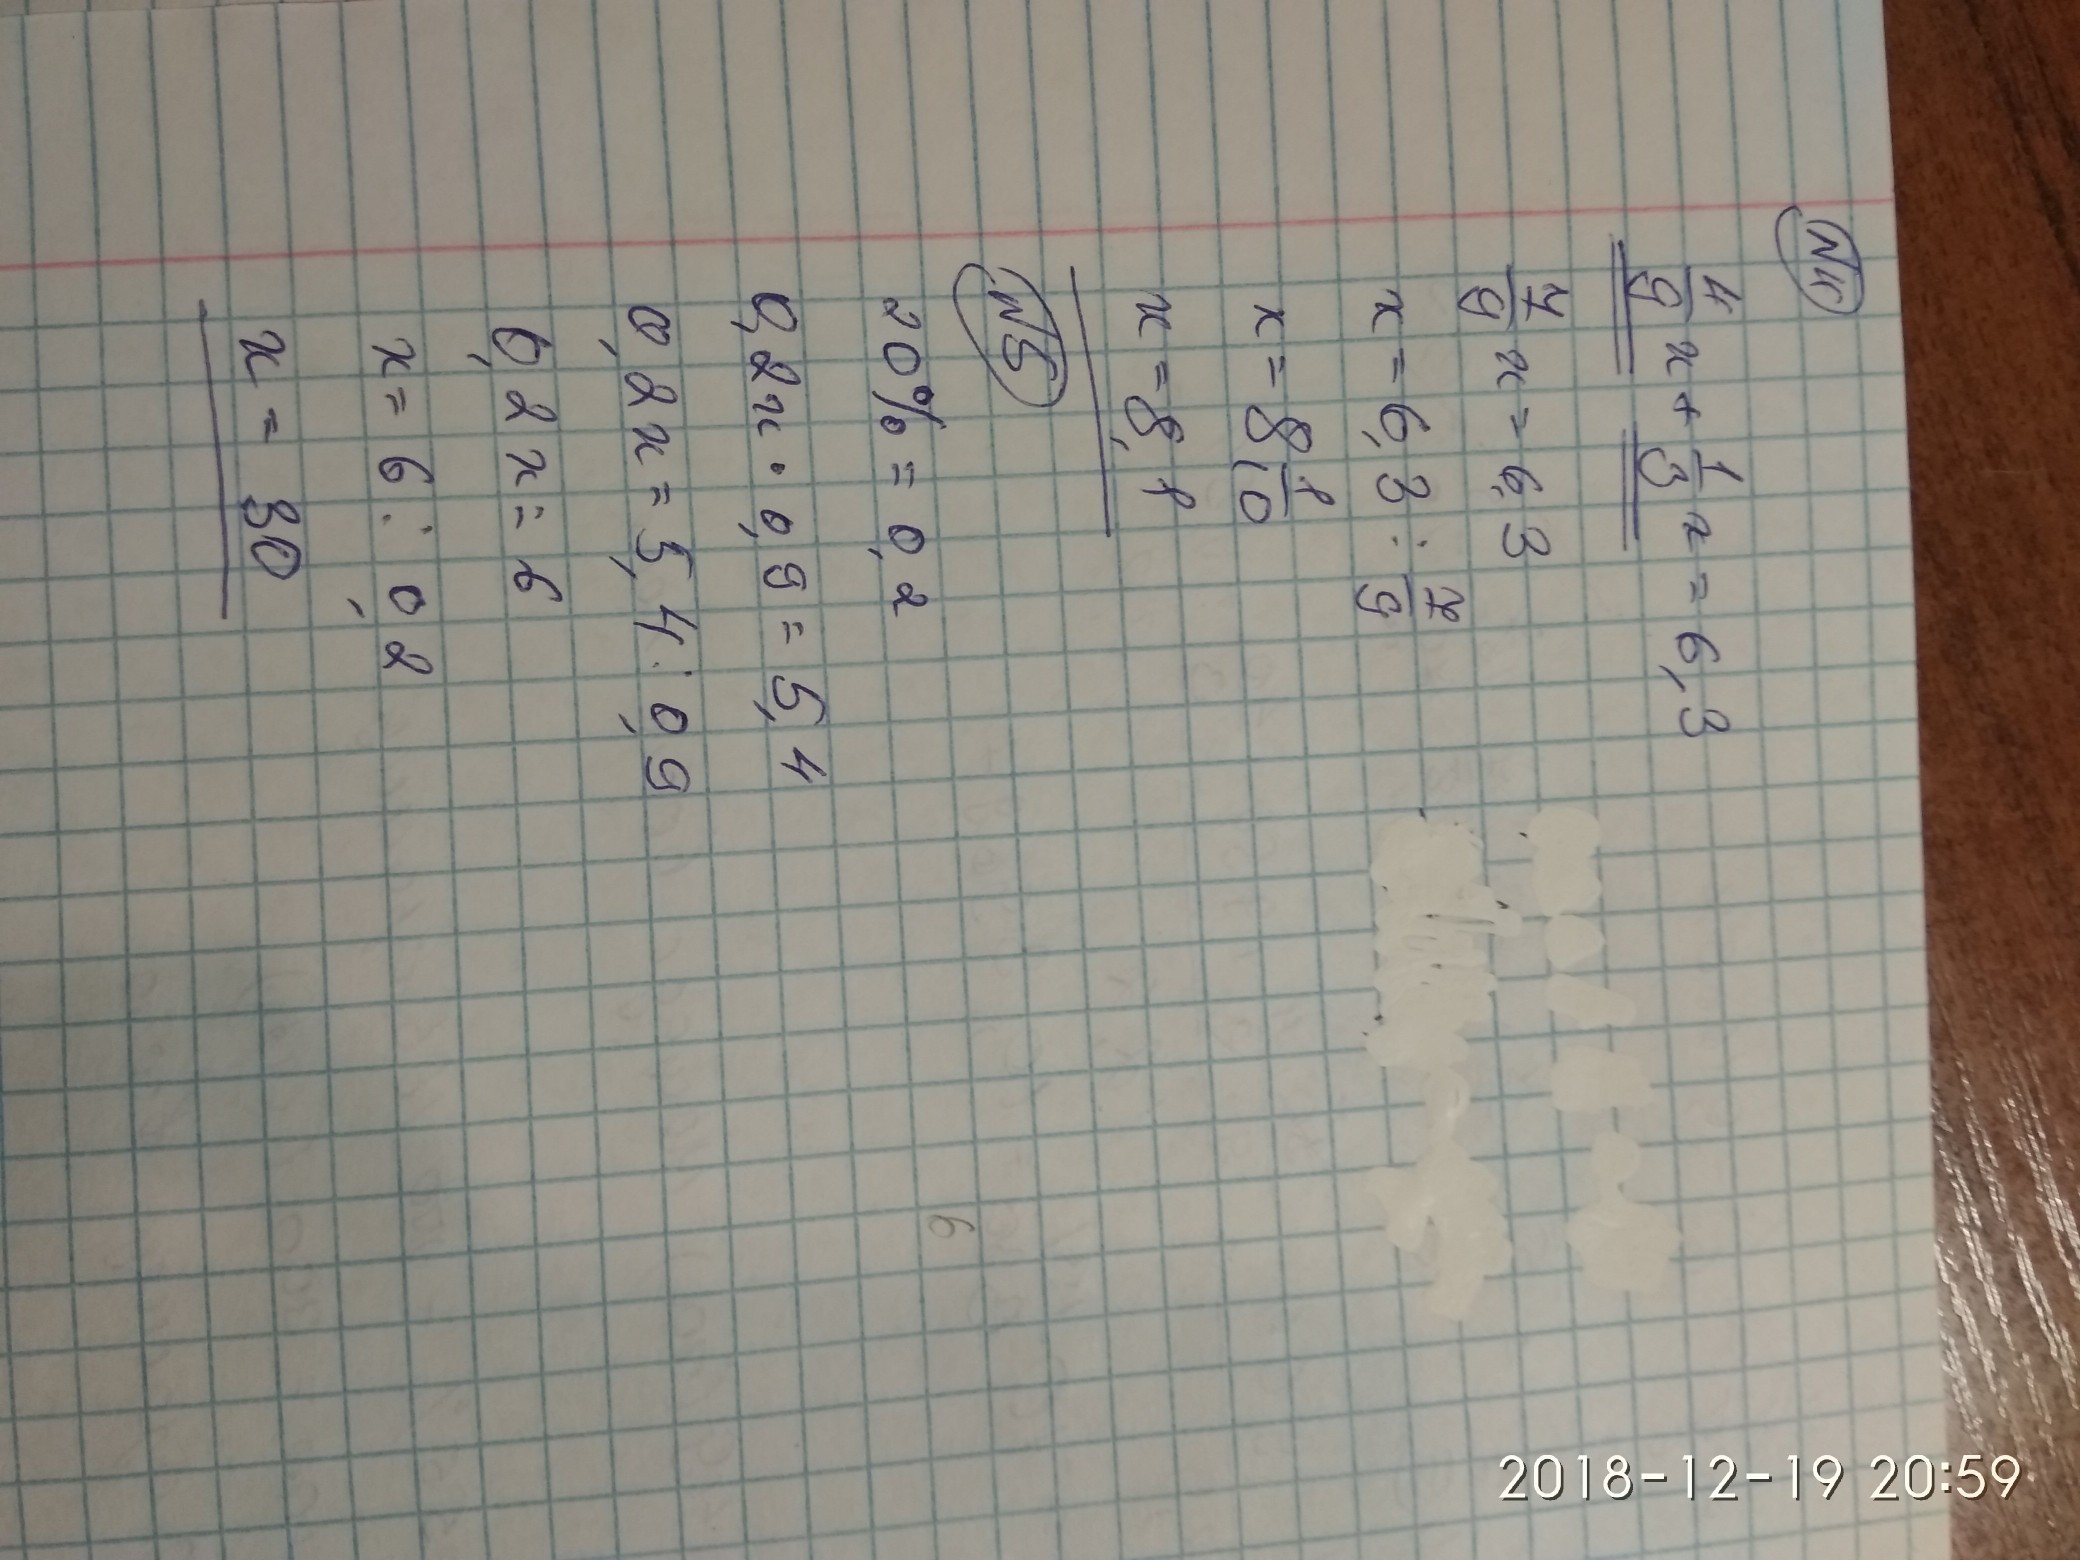 №4
4/9 x + 1/3 x = 6,3
7/9 x = 6,3
x = 6,3 : 7/9
x = 8 1/10
x = 8,1
№5
20% = 0,2
0,2x · 0,9 = 5,4
0,2x = 5,4 : 0,9
0,2x = 6
x = 6 : 0,2
x = 30
6
2018-12-19 20:59